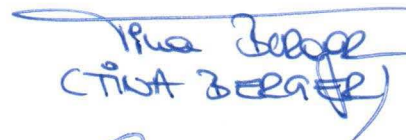 Tina Berger
(TINA BERGER)